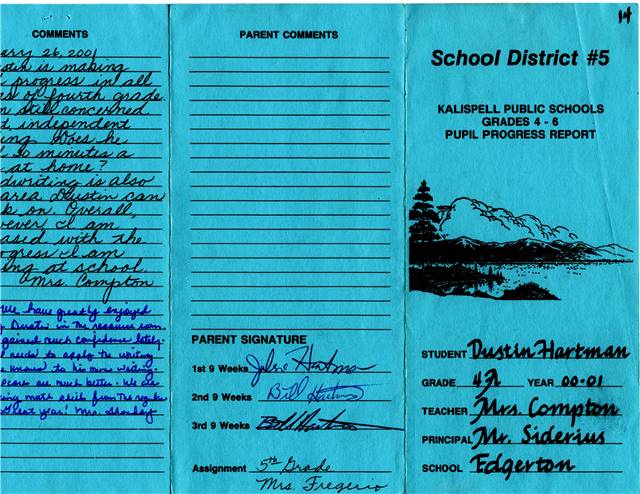 COMMENTS
ary 26, 2001
stin is making
progress in all
es of fourth grade.
n still concerned
t independent
ing. Does he
20 minutes a
at home?
dwriting is also
area Dustin can
k on. Overall,
ever I am
ased with the
ogress I am
ing at school.
Mrs. Compton
We have greatly enjoyed
Dustin in the resource room.
gained much confidence lately.
needs to apply the writing
knows to his own writing.
are much better. We are
ing math skills from the regular
Great year! Mrs.
PARENT COMMENTS
PARENT SIGNATURE
1st 9 Weeks Julie Hartman
2nd 9 Weeks Bill Hartman
3rd 9 Weeks Bill Hartman
Assignment 5th Grade
Mrs. Fregerio
14
School District #5
KALISPELL PUBLIC SCHOOLS
GRADES 4 - 6
PUPIL PROGRESS REPORT
STUDENT Dustin Hartman
GRADE 4 YEAR 00-01
TEACHER Mrs. Compton
PRINCIPAL Mr. Siderius
SCHOOL Edgerton